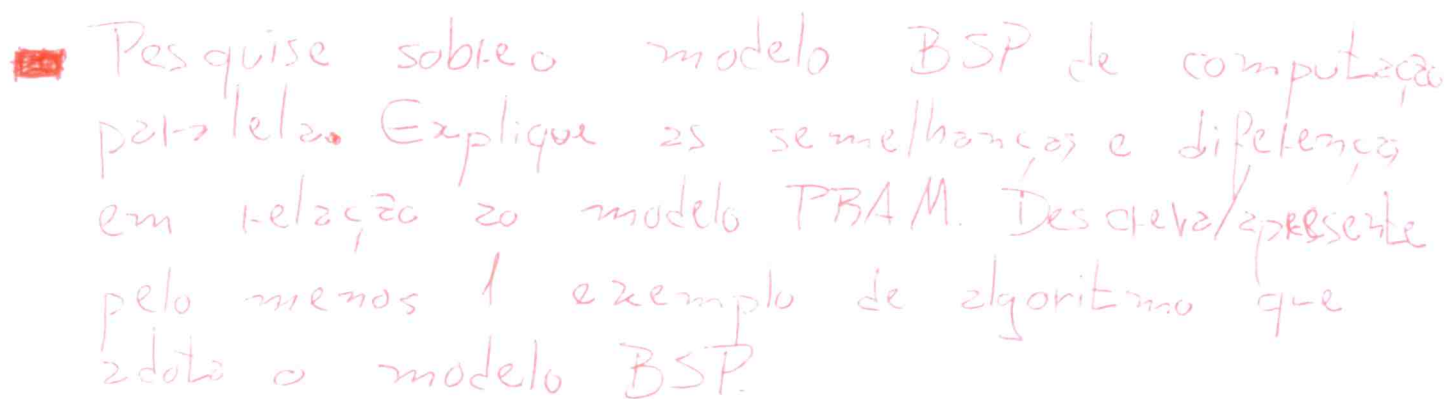 Pesquise sobre o modelo BSP de computação
paralela. Explique as semelhanças e diferenças
em relação ao modelo PRAM. Descreva/apresente
pelo menos 1 exemplo de algoritmo que
adota o modelo BSP.